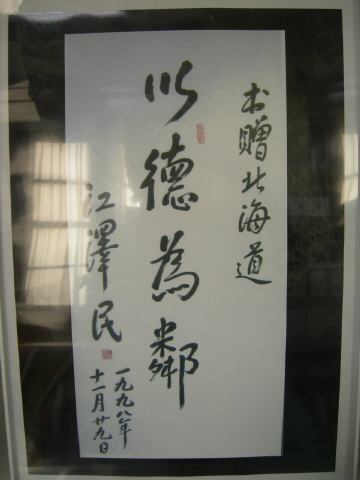 书贈北海道
以德為鄰
江澤民
一九九八年
十一月廿九日